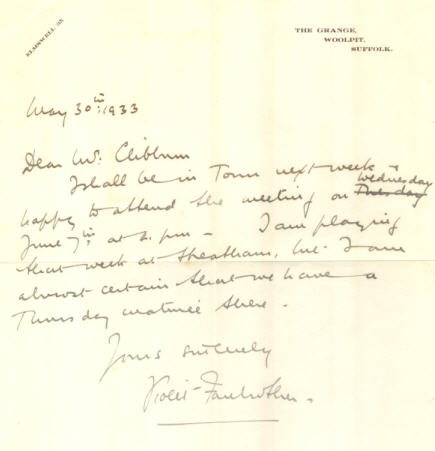 ELMSWELL 35
THE GRANGE,
WOOLPIT,
SUFFOLK.
May 30th 1933
Dear Mr. Clibburn
I shall be in Town next week &
happy to attend the meeting on Wednesday Thursday
June 7th at 2. pm - I am playing
that week at Streatham, but I am
almost certain that we have a
Thursday matineé there -
Yours sincerely
Violet Fairbrother.